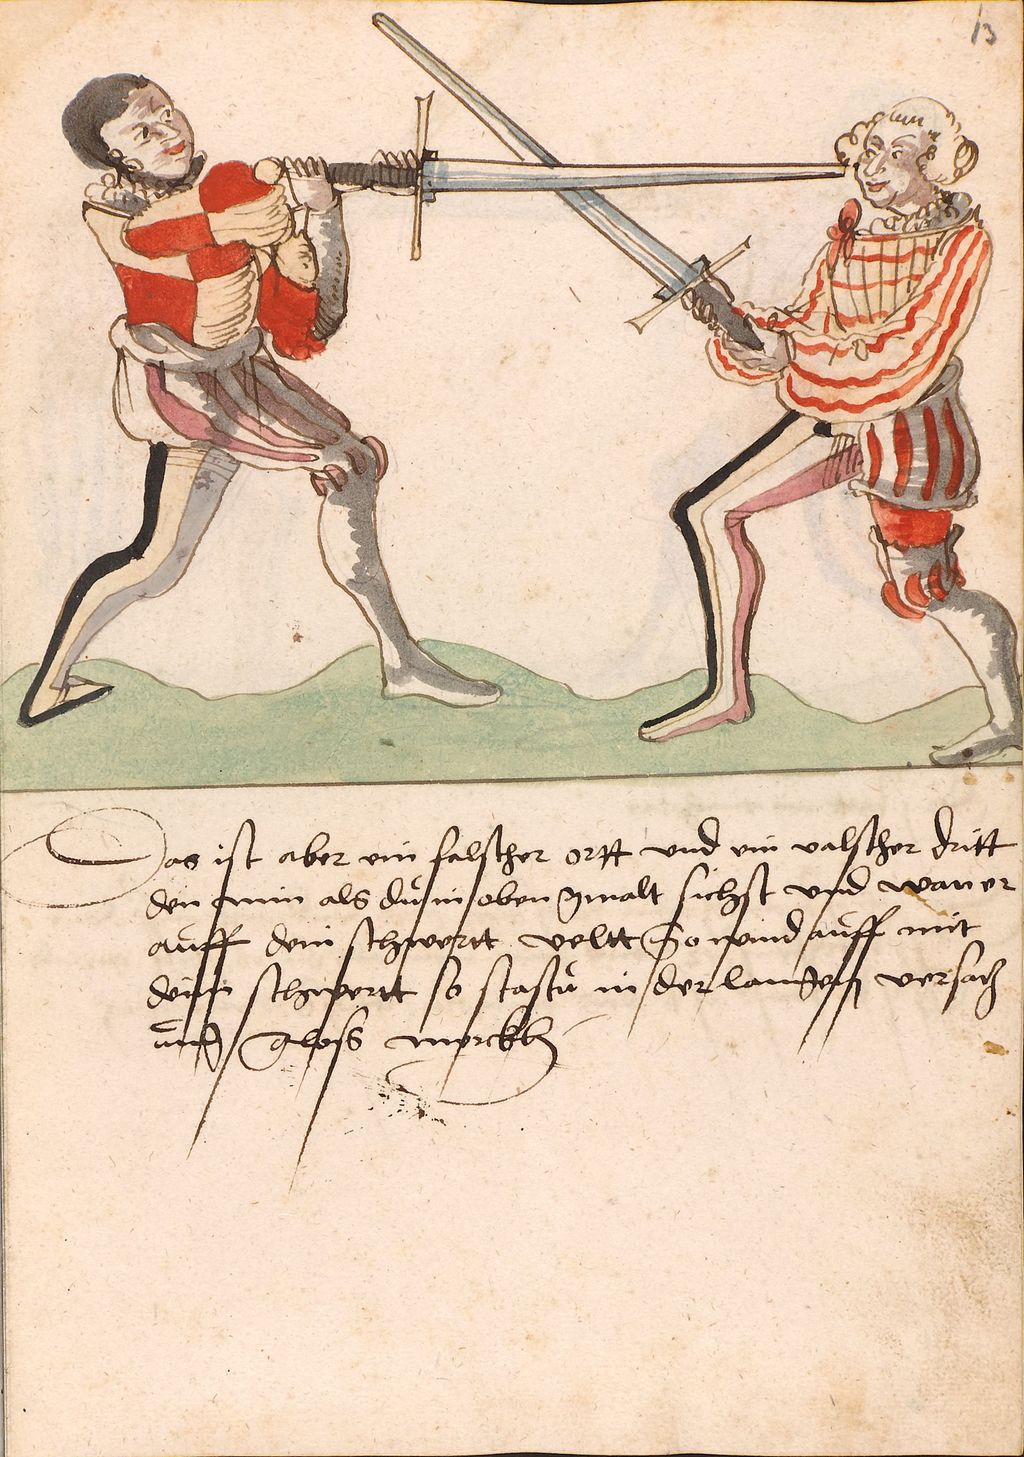 13
Das ist aber ein falscher ortt und ein valscher dritt
den nim als du in oben gmalt sichst und wan er
auff dein schwertt veltt So wind auff mit
deim schwertt so stastu in der langen versatz
und gloss merckh